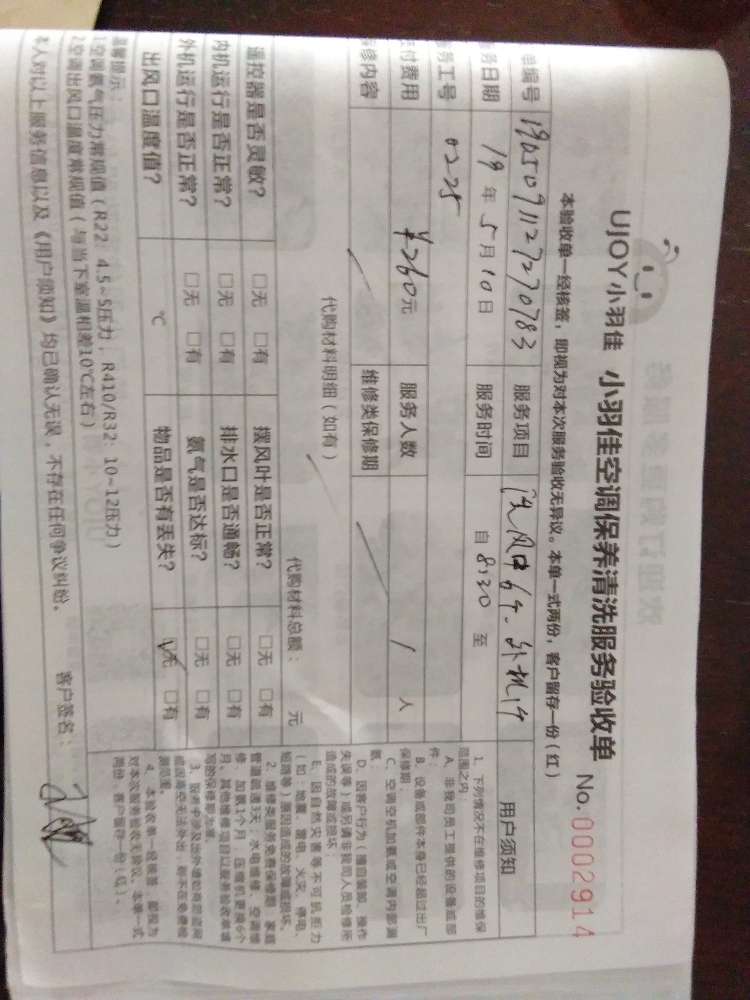 UJOY小羽佳 小羽佳空调保养清洗服务验收单 No. 0002914
本验收单一经核签，即视为对本次服务验收无异议。本单一式两份，客户留存一份（红）
编号 服务项目
日期 19年5月10日 服务时间 自8:30 至
工号 0225
付费用 ¥260元 服务人数 1 人
修内容 维修类保修期
代购材料明细（如有） 代购材料总额： 元
遥控器是否灵敏？ □无 □有 摆风叶是否正常？ □无 □有
内机运行是否正常？ □无 □有 排水口是否通畅？ □无 □有
外机运行是否正常？ □无 □有 氨气是否达标？ □无 □有
出风口温度值？ ℃ 物品是否有丢失？ ☑无 □有
温馨提示：
1.空调氨气压力常规值（R22：4.5~5压力，R410/R32：10~12压力）
2.空调出风口温度常规值（与当下室温相差10℃左右）
本人对以上服务信息以及《用户须知》均已确认无误，不存在任何争议纠纷。 客户签名：
用户须知
1、下列情况不在维修项目的维保
范围之内：
A、非我司员工提供的设备或部
件；
B、设备或部件本身已经超过出厂
保修期；
C、空调空机加氨或空调内部漏
氨；
D、因客户行为（擅自装卸、操作
失误等）或另请非我司人员检修所
造成的故障或损坏；
E、因自然灾害等不可抗拒力
（如：地震、雷电、火灾、停电、
短路等）原因造成的故障或损坏。
2、维修类服务免费保修期：家庭
管道疏通3天；水电维修、空调维
修、加氨1个月；压缩机更换6个
月；其他维修项目以服务验收单填
写的保修期为准。
4、本验收单一经核签，即视为
对本次服务验收无异议。本单一式
两份，客户留存一份（红）。